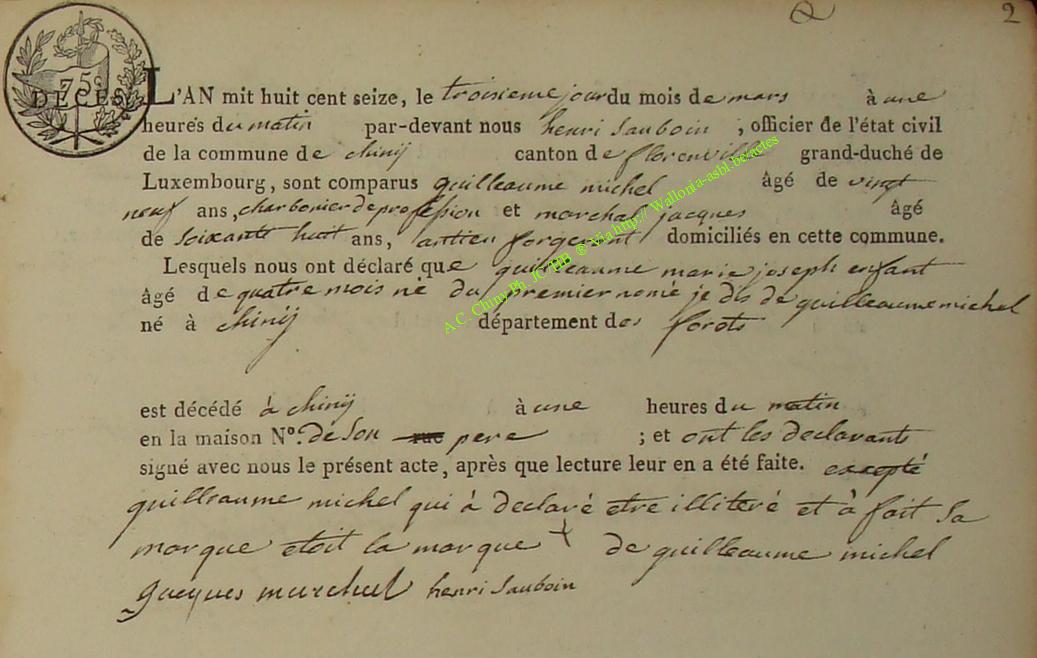 2
75c
DÉCÈS
L'AN mil huit cent seize, le troisieme jour du mois de mars à une
heures du matin par-devant nous henri Sauboin , officier de l'état civil
de la commune de chinij canton de florenville grand-duché de
Luxembourg, sont comparus guilleaume michel âgé de vingt
neuf ans, charbonier de profession et marchal jacques âgé
de Soixante huit ans, antien forgeront domiciliés en cette commune.
Lesquels nous ont déclaré que guilleaume marie joseph enfant
âgé de quatre mois né du premier nomé je dis de guilleaume michel
né à chinij département des forets
est décédé à chinij à une heures du matin
en la maison N.º de Son rue pere ; et ont les declarants
signé avec nous le présent acte, après que lecture leur en a été faite. excepté
guilleaume michel qui à declaré etre illiteré et à fait Sa
marque etoit la marque + de guilleaume michel
Jacques marchal henri Sauboin
A.C. Chiny Ph. JC HB ® Via http:// Wallonia-asbl.be/actes